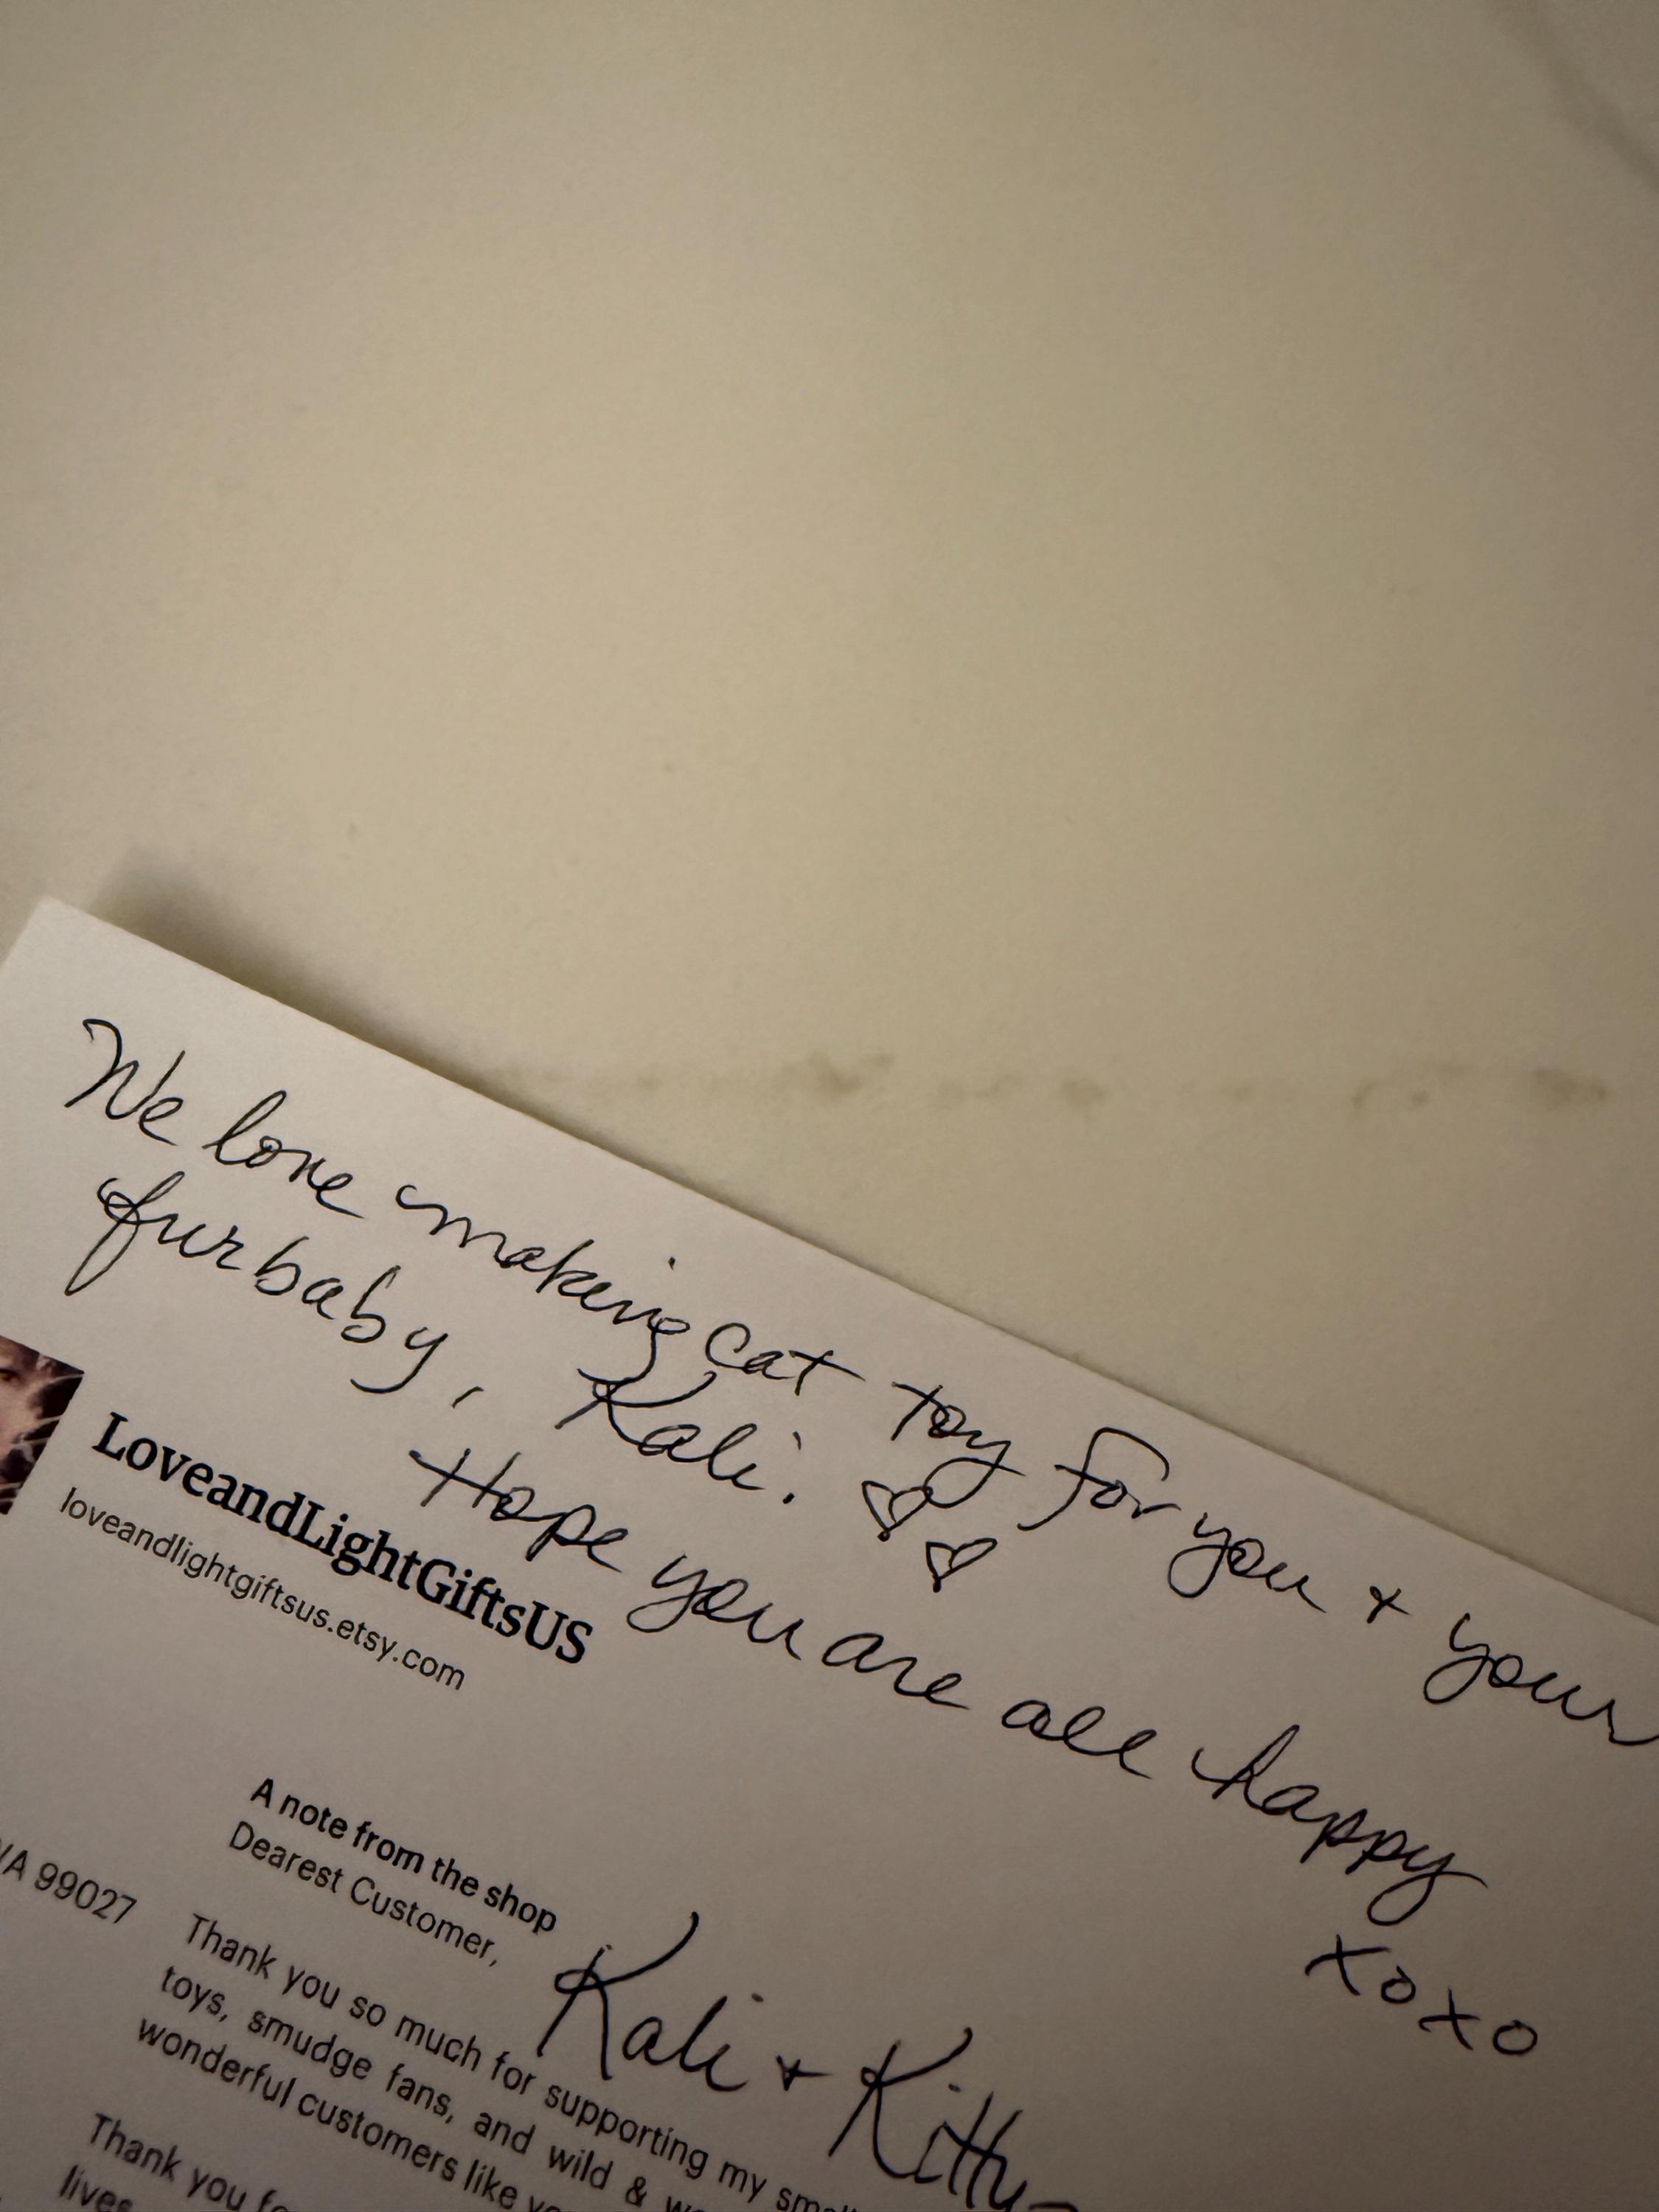 We love making cat toy for you + your
furbaby, Kali. ♡ ♡
Hope you are all happy
xoxo
LoveandLightGiftsUS
loveandlightgiftsus.etsy.com
A note from the shop
Dearest Customer,
Kali + Kitty
WA 99027
Thank you so much for supporting my
toys, smudge fans, and wild &
wonderful customers like
Thank you
lives